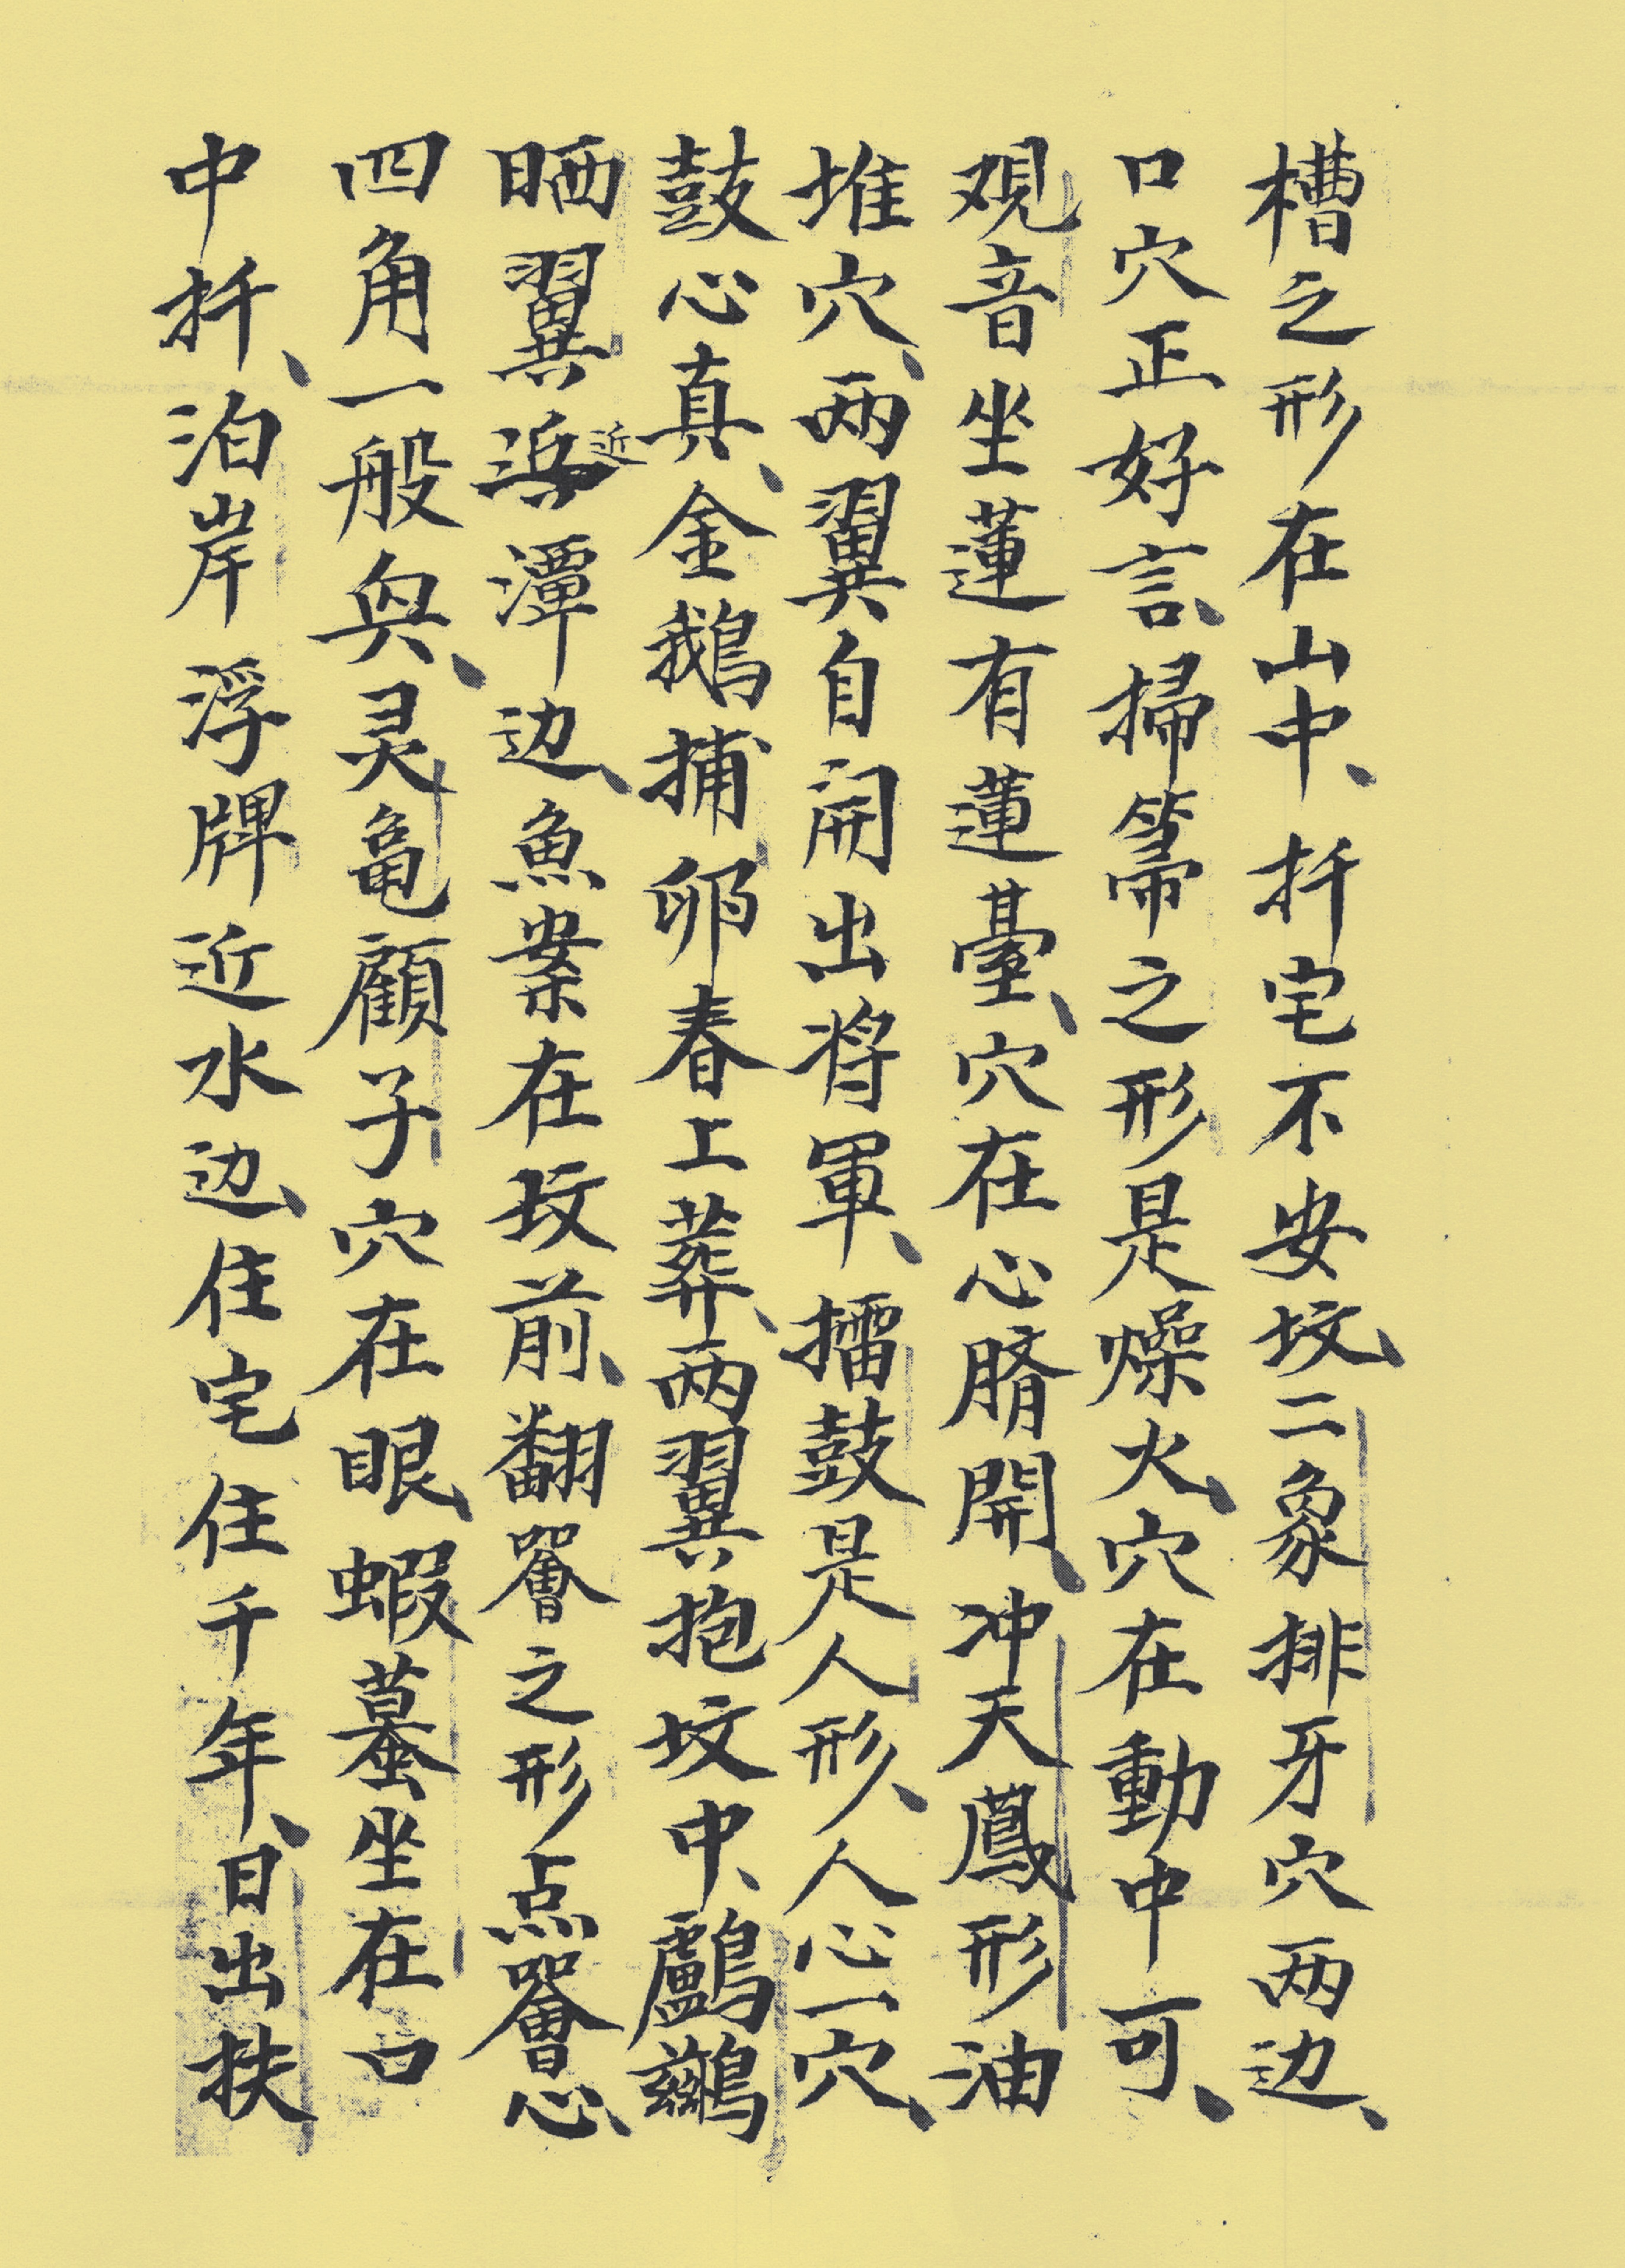 槽之形在山中、扦宅不安坟、二象排牙穴两边、
口穴正好言、掃箒之形是燥火、穴在動中可、
观音坐蓮有蓮臺、穴在心脐開、冲天鳳形油
堆穴、两翼自開出将軍、擂鼓是人形、人心一穴、
鼓心真、金鵝捕卵春上葬、两翼抱坟中、鸕鷀
晒翼近潭边、魚案在坟前、翻罾之形点罾心、
四角一般與、灵龟顧子穴在眼、蝦蟇坐在口
中扦、泊岸浮牌近水边、住宅住千年、日出扶